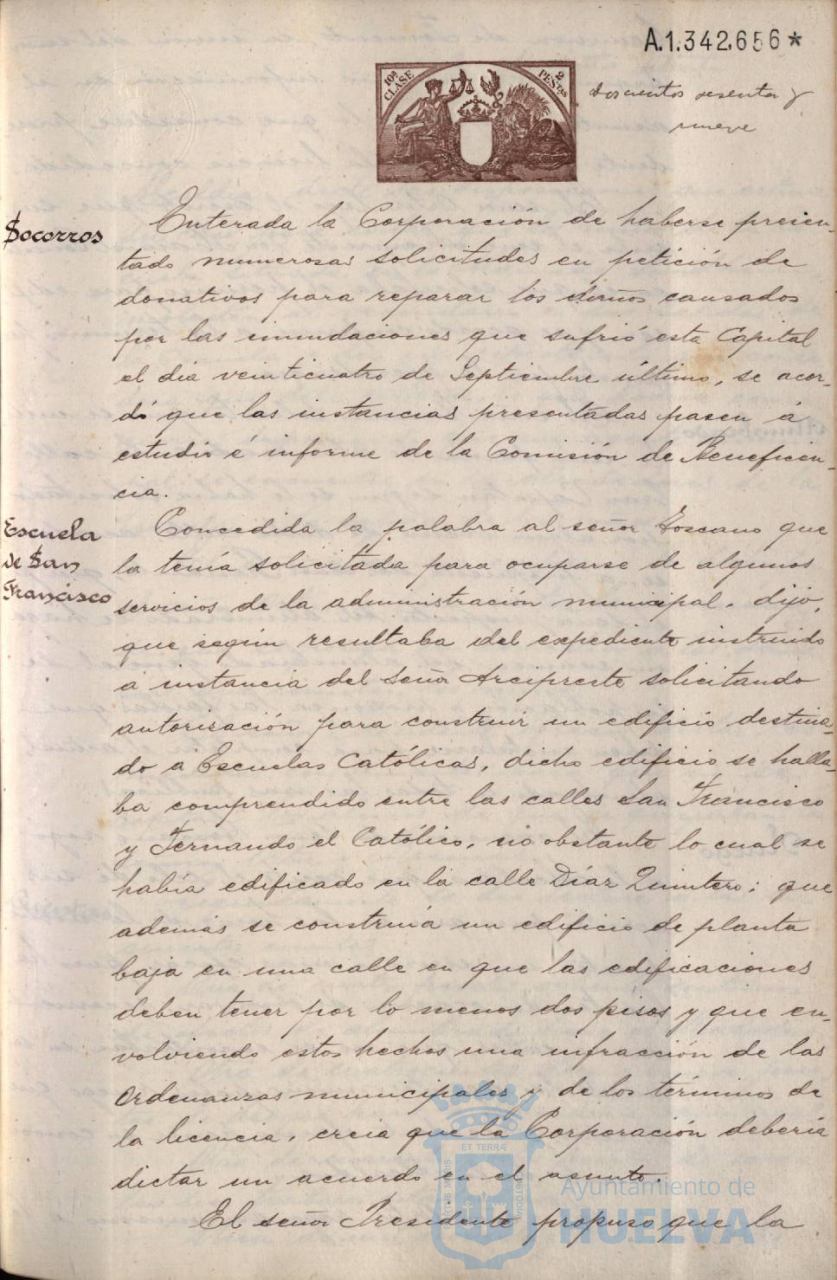 A.1.342,656*
10ª CLASE
2 PESTAS
doscientos sesenta y
nueve
Socorros
Enterada la Corporación de haberse presen-
tado numerosas solicitudes en petición de
donativos para reparar los daños causados
por las inundaciones que sufrió esta Capital
el día veinticuatro de Septiembre último, se acor-
dó que las instancias presentadas pasen á
estudio é informe de la Comisión de Beneficen-
cia.
Escuela
de San
Francisco
Concedida la palabra al señor Toscano que
la tenía solicitada para ocuparse de algunos
servicios de la administración municipal, dijo,
que según resultaba del expediente instruido
á instancia del señor Arcipreste solicitando
autorisación para construir un edificio destina-
do á Escuelas Católicas, dicho edificio se halla-
ba comprendido entre las calles San Francisco
y Fernando el Católico, no obstante lo cual se
había edificado en la calle Díaz Quintero; que
además se construía un edificio de planta
baja en una calle en que las edificaciones
deben tener por lo menos dos pisos y que en-
volviendo estos hechos una infracción de las
Ordenanzas municipales y de los términos de
la licencia, creia que la Corporación debería
dictar un acuerdo en el asunto.
El señor Presidente propuso que la
ET TERRÆ
Ayuntamiento de
HUELVA